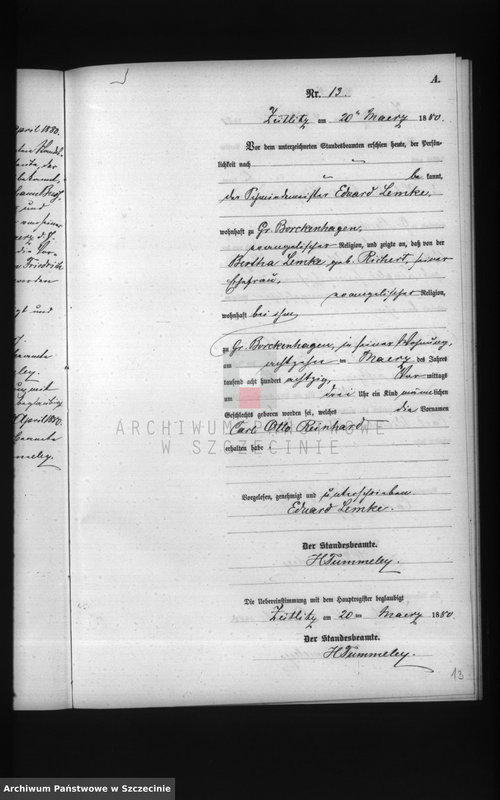 April 1880.
und
Friedrich
worden
gt und
April 1880.
A.
Nr. 13.
Zeitlitz am 20ten Maerz 1880.
Vor dem unterzeichneten Standesbeamten erschien heute, der Persön-
lichkeit nach
be kannt,
der Schmiedemeister Eduard Lemke,
wohnhaft zu Gr. Borckenhagen,
evangelischer Religion, und zeigte an, daß von der
Bertha Lemke geb. Richert, seiner
Ehefrau,
evangelischer Religion,
wohnhaft bei ihm
zu Gr. Borckenhagen, in seiner Wohnung,
am achtzehn ten Maerz des Jahres
tausend acht hundert achtzig, Vor mittags
um drei Uhr ein Kind männlichen
Geschlechts geboren worden sei, welches die Vornamen
Carl Otto Reinhard
erhalten habe.
Vorgelesen, genehmigt und unterschrieben
Eduard Lemke.
Der Standesbeamte.
H Tummeley.
Die Uebereinstimmung mit dem Hauptregister beglaubigt
Zeitlitz am 20 ten Maerz 1880
Der Standesbeamte.
H Tummeley.
13
ARCHIWUM PAŃSTWOWE
W SZCZECINIE
Archiwum Państwowe w Szczecinie